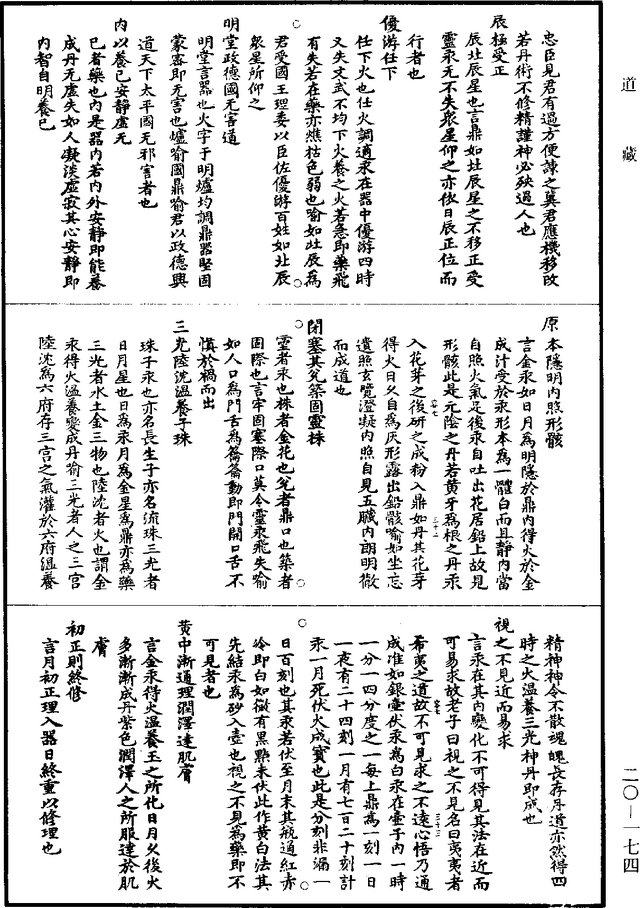 道藏
忠臣見君有過方便諫之冀君應機移改
若丹術不修精謹神必殃過人也
辰極受正
辰北辰星也言鼎如北辰星之不移正受
靈汞元不失衆星仰之亦依日辰正位而
行者也
優游任下
任下火也任火調適汞在器中優游四時
又失文武不均下火養之火若急即藥飛
有失若在藥亦燋枯色弱也喻如北辰為
君受國王理委以臣佐優游百姓如北辰
衆星所仰之
明堂政德國无害道
明堂言器也火字于明爐均調鼎器堅固
蒙密即无害也爐喻國鼎喻君以政德興
道天下太平國无邪害者也
內以養己安靜虛无
己者藥也內是器內若內外安靜即能養
成丹无虛失如人凝淡虛寂其心安靜即
內智自明養己
原本隱明內照形骸
言金汞如日月為明隱於鼎內得火於金
成汁受於汞形本為一體白而且靜內當
自照火氣足後汞自吐出花居鉛上故見
形骸此是元陰之丹若黃牙為根之丹汞
入花芽之後研之成粉入鼎如丹其花芽
得火日久自為灰形露出鉛骸喻如坐忘
遺照玄覽澄凝內照自見五臟內朗明徹
而成道也
閉塞其兌築固靈株
靈者汞也株者金花也兌者鼎口也築者
固際也言牢固塞際口莫令靈汞飛失喻
如人口為門舌為籥籥動即門開口舌不
慎於禍而出
三光陸沈溫養子珠
珠子汞也亦名長生子亦名流珠三光者
日月星也日為汞月為金星為鼎亦為藥
三光者水土金三物也陸沈者火也謂金
汞得火溫養變成丹喻三光者人之三宮
陸沈為六府存三宮之氣灌於六府溫養
精神神令不散魂魄長存丹道亦然得四
時之火溫養三光神丹即成也
視之不見近而易求
言汞在其內變化不可得見其法在近而
可易求故老子曰視之不見名曰夷夷者
希夷之道故不可見求之不遠心悟乃通
成准如銀壷伏汞為白汞在壷子內一時
一分一四分度之一每上鼎為一刻一日
一夜有二十四刻一月有七百二十刻計
汞一月死伏火成寶也此是分刻非漏一
日百刻也其汞若伏至月末其瓶通紅赤
冷即白如微有黑點未伏此作黃白法其
先結汞為砂入壺也視之不見為藥即不
可見者也
黃中漸通理潤澤達肌膚
言金汞得火溫養王之所化日月久後火
多漸漸成丹紫色潤澤人之所服達於肌
膚
初正則終修
言月初正理入器日終重以修理也
二〇—一七四